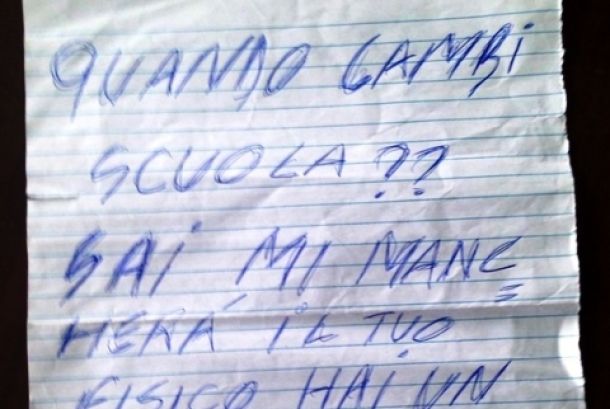 QUANDO CAMBI
SCUOLA??
SAI MI MANC
HERÁ IL TUO
FISICO HAI UN